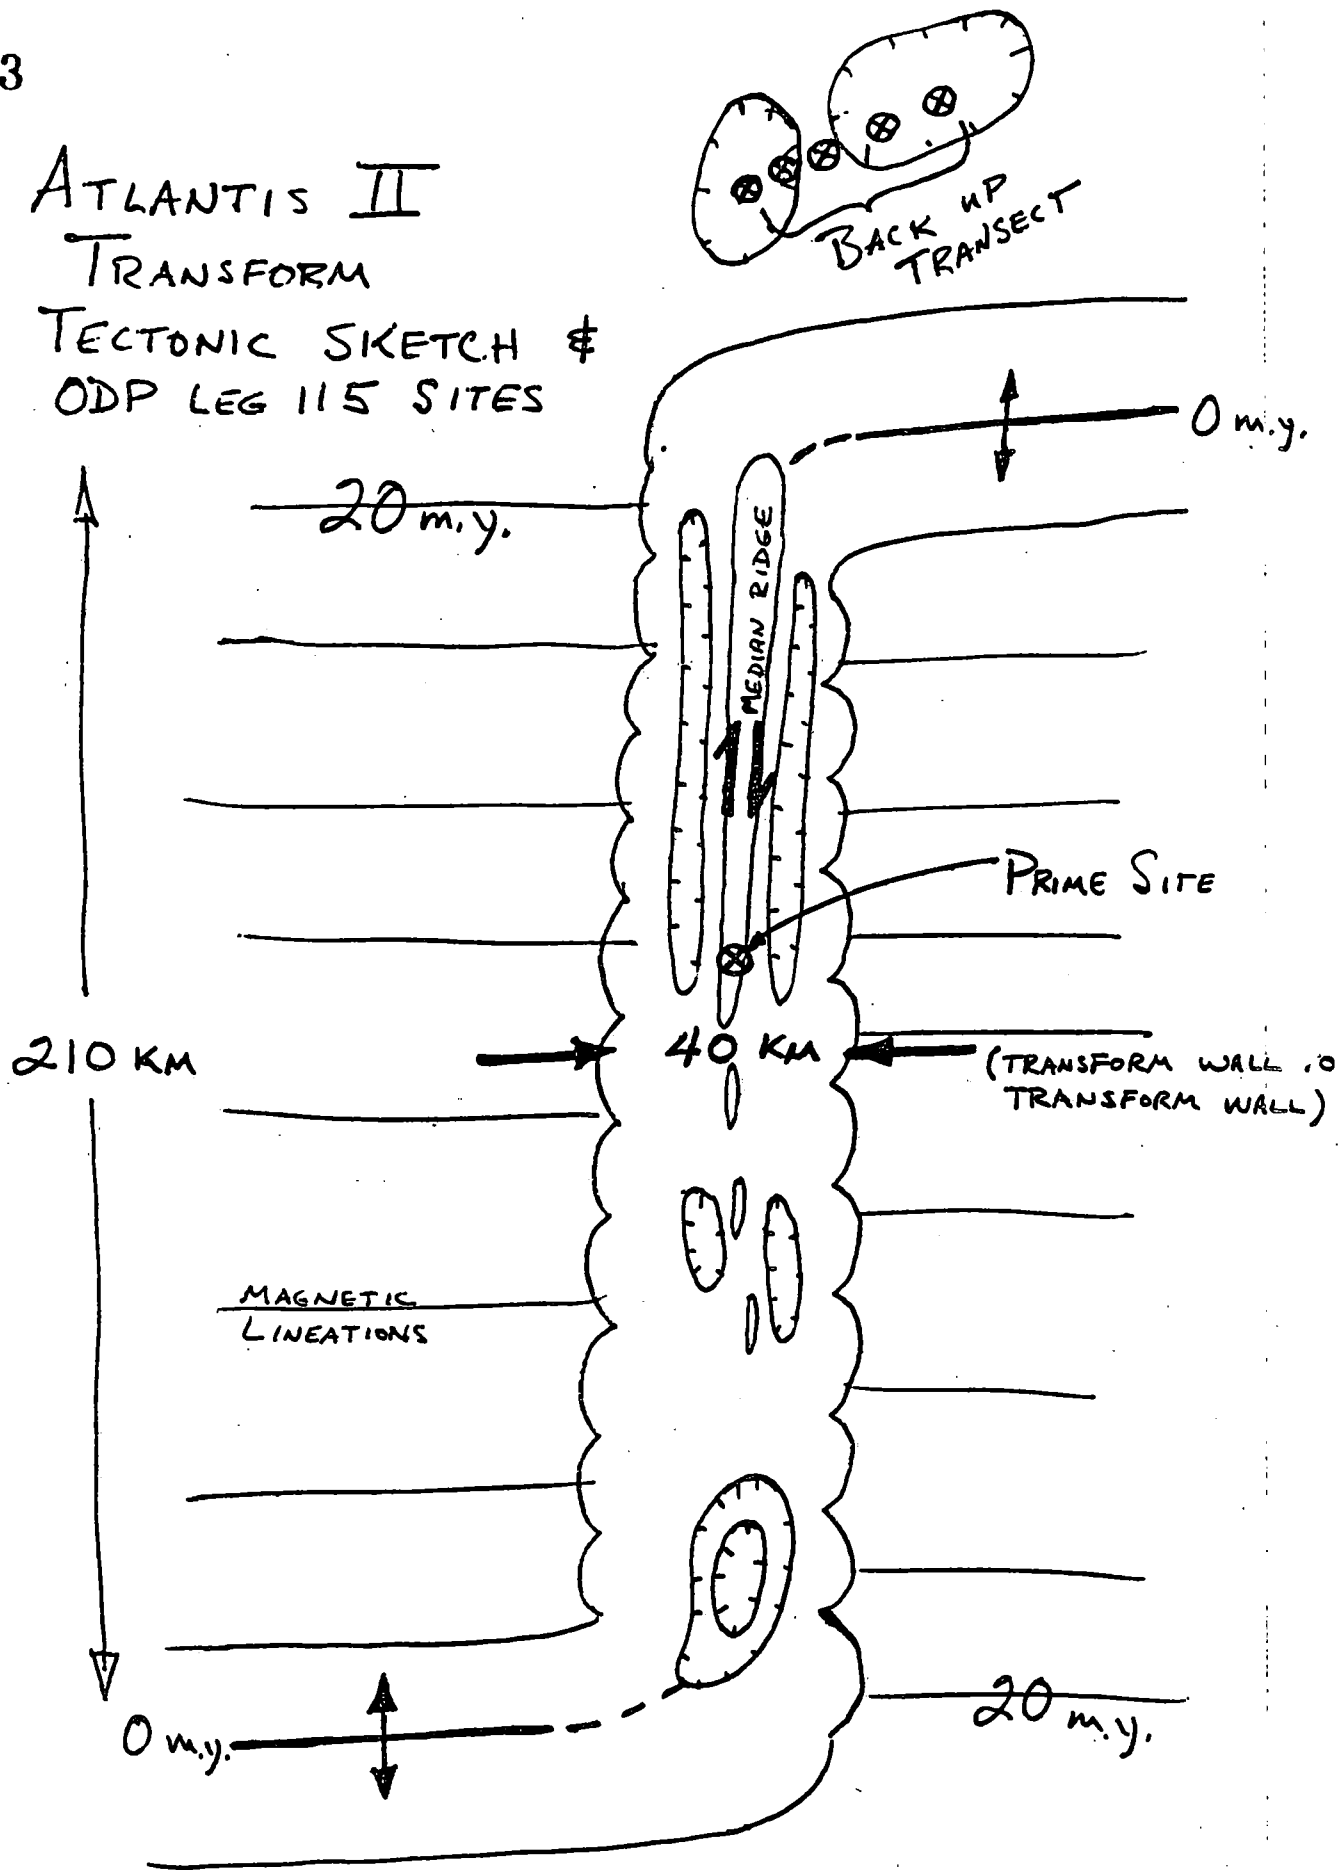 3
ATLANTIS II
TRANSFORM
TECTONIC SKETCH &
ODP LEG 115 SITES
BACK UP
TRANSECT
0 m.y.
20 m.y.
MEDIAN RIDGE
PRIME SITE
210 KM
40 KM
(TRANSFORM WALL
TRANSFORM WALL)
MAGNETIC
LINEATIONS
0 m.y.
20 m.y.